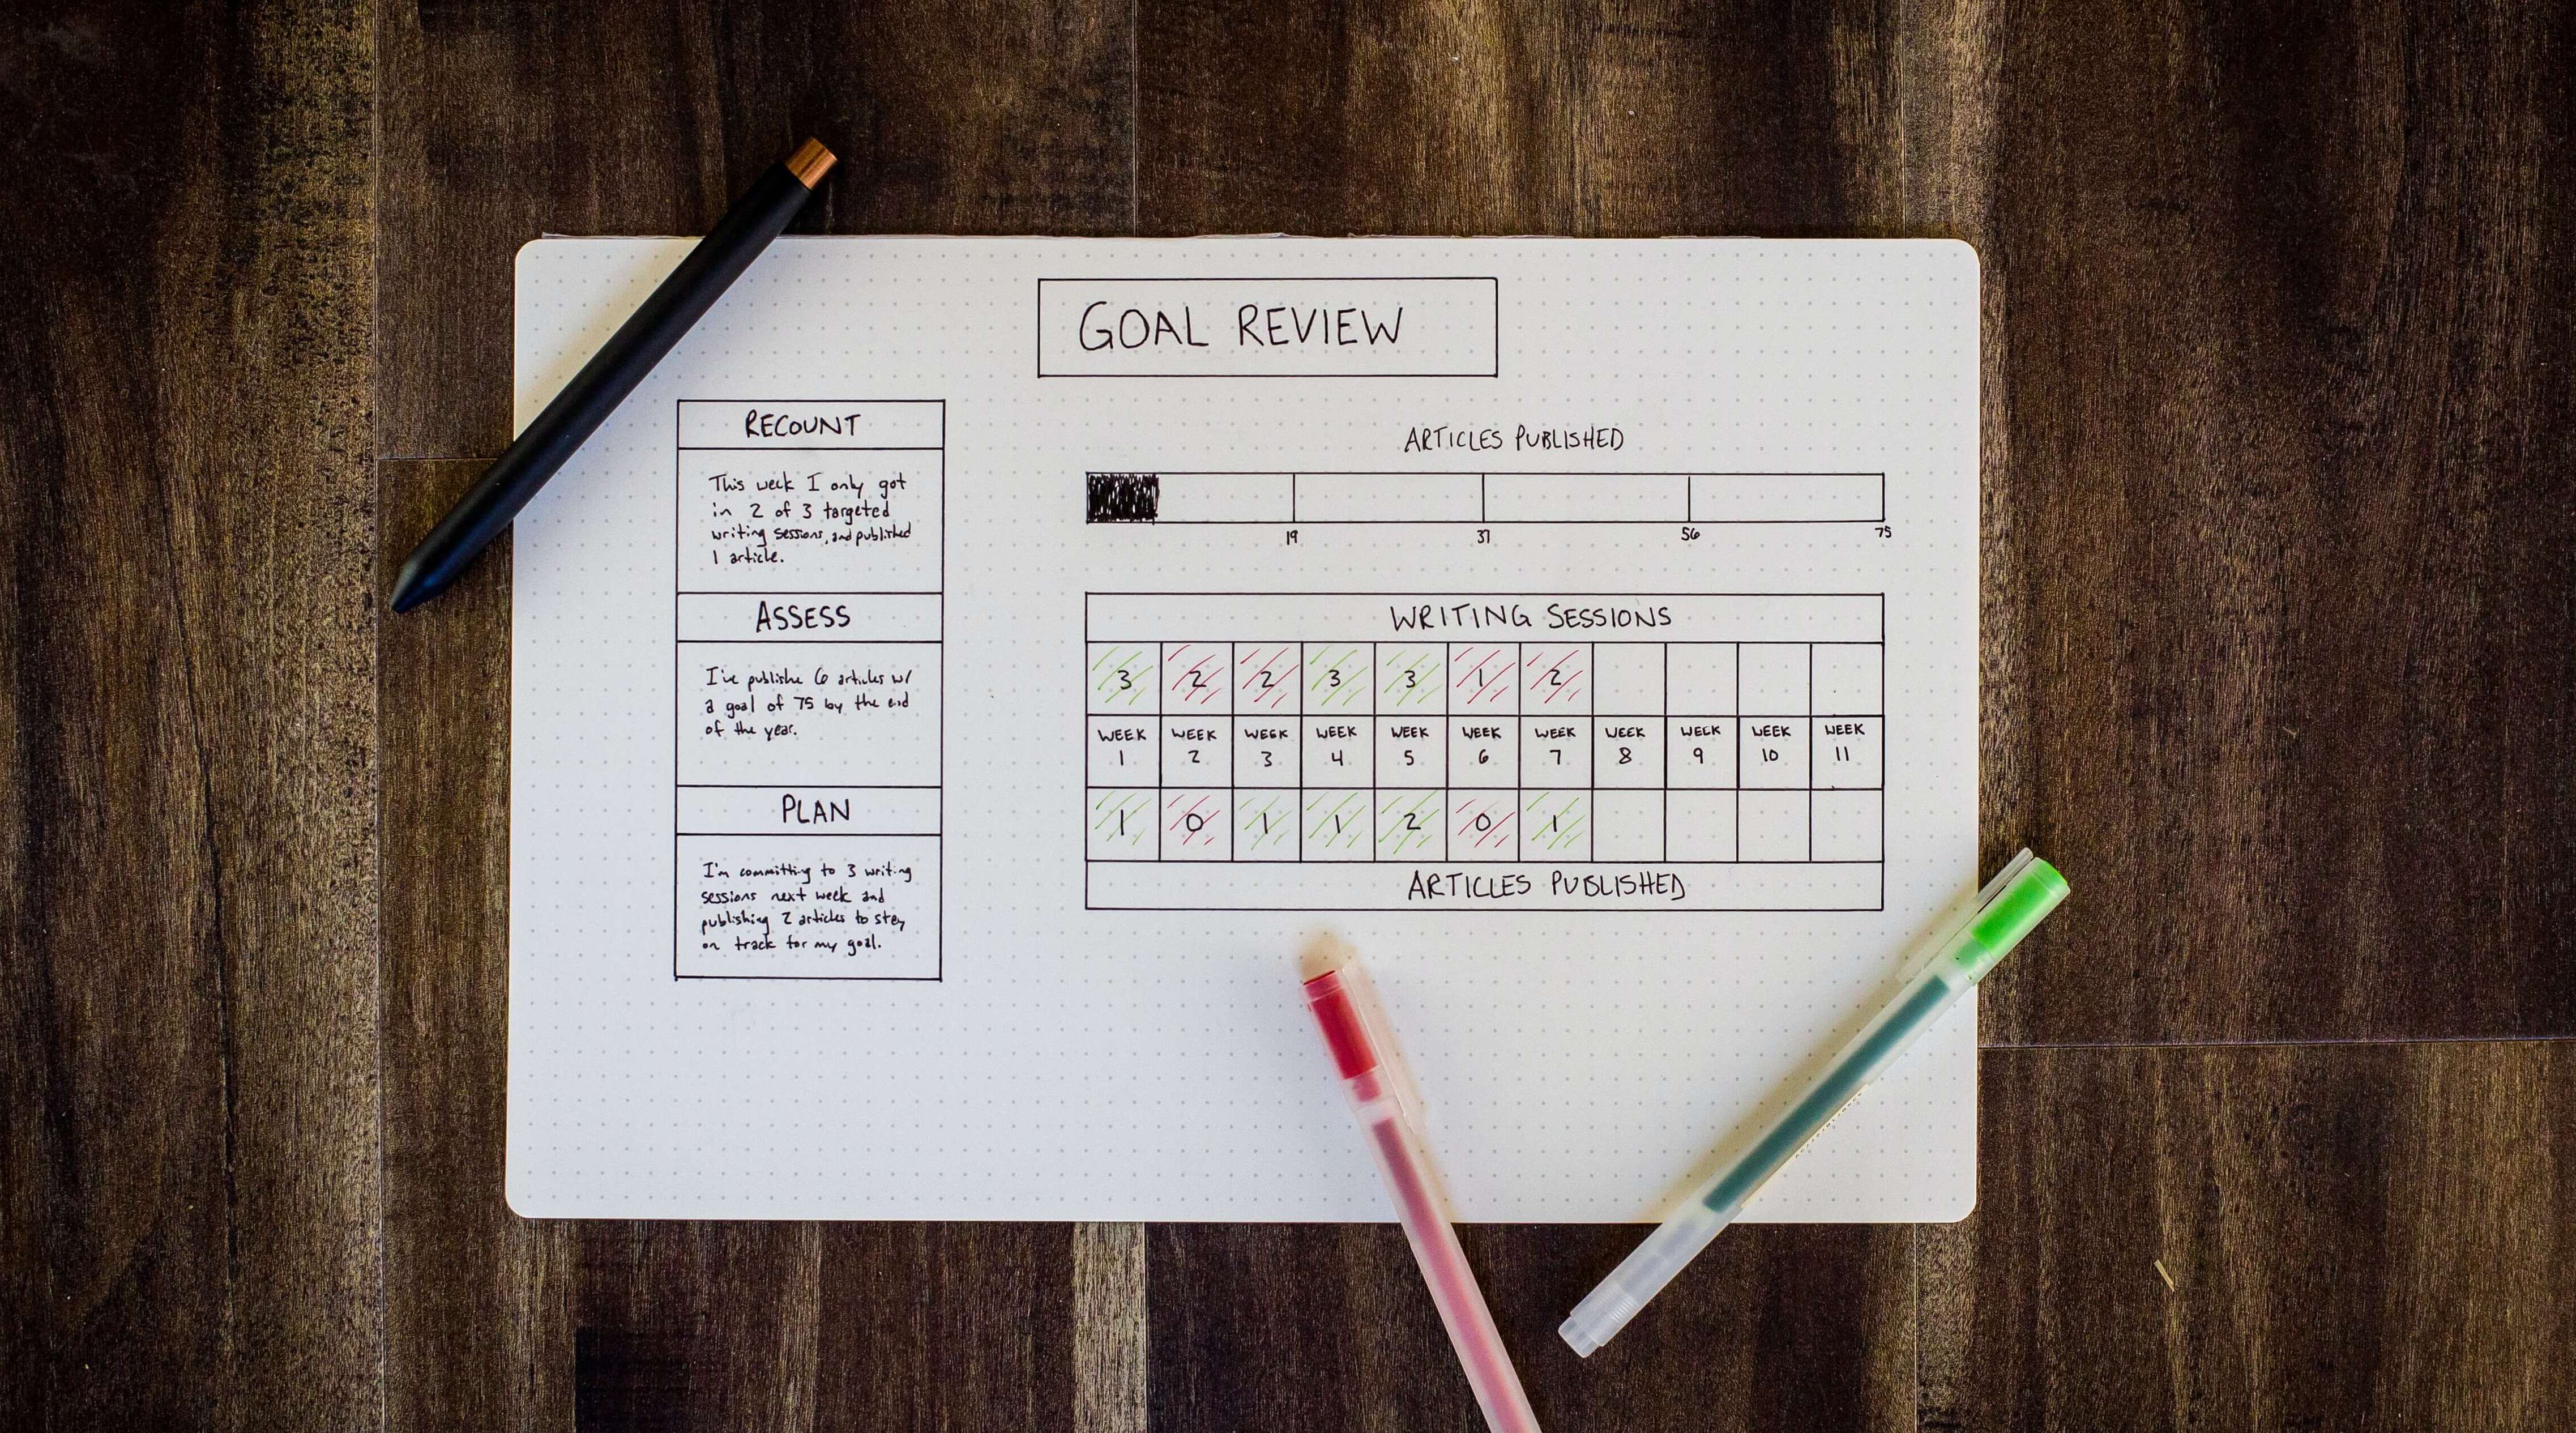 GOAL REVIEW
RECOUNT
This week I only got
in 2 of 3 targeted
writing sessions, and published
1 article.
ASSESS
I've publishe 6 articles w/
a goal of 75 by the end
of the year.
PLAN
I'm committing to 3 writing
sessions next week and
publishing 2 articles to stey
on track for my goal.
ARTICLES PUBLISHED
19 37 56 75
WRITING SESSIONS
3 2 2 3 3 1 2
WEEK WEEK WEEK WEEK WEEK WEEK WEEK WEEK WEEK WEEK WEEK
1 2 3 4 5 6 7 8 9 10 11
1 0 1 1 2 0 1
ARTICLES PUBLISHED